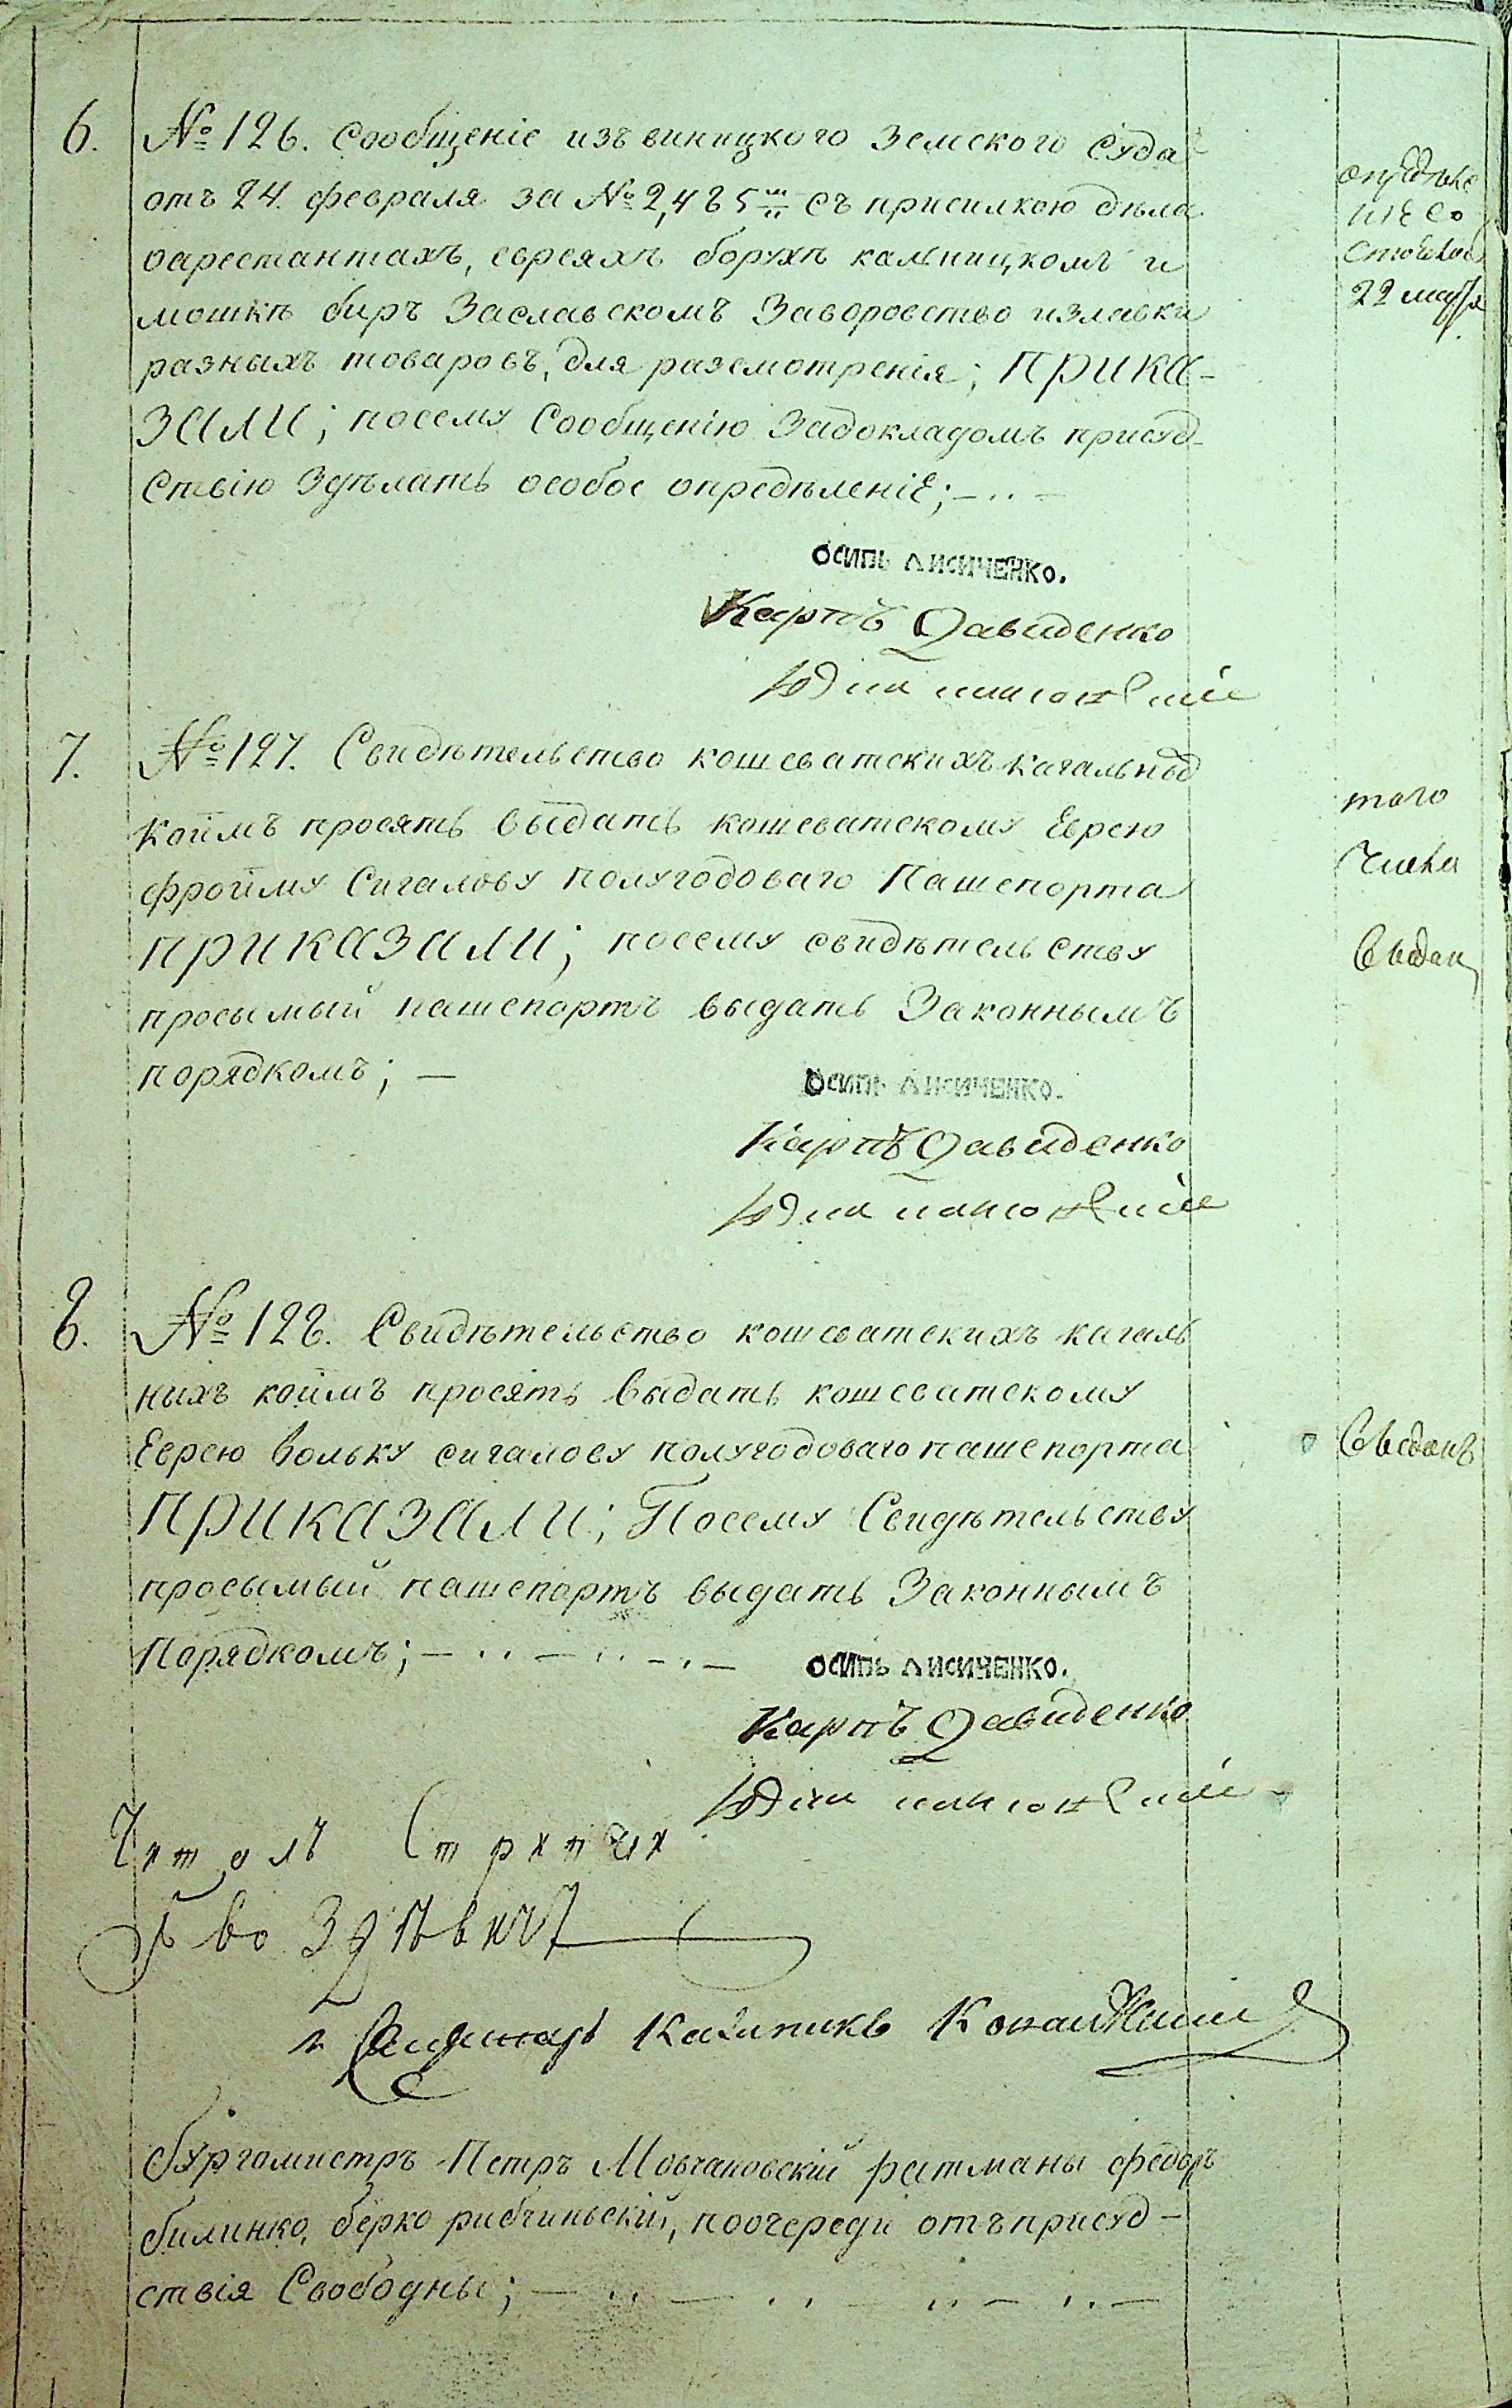 6. № 126. Сообщеніе изъ виницкого Земского Суда
отъ 24. февраля за № 2,485 съ присилкою дѣла
оарестантахъ, евреяхъ борухѣ кальницкомъ и
мошкѣ биръ Заславскомъ Заворовство излавки
разныхъ товаровъ, для разсмотренія; ПРИКА-
ЗАЛИ; посему Сообщенію Задокладомъ присуд-
ствію Здѣлать особое опредѣленіЕ; —
опрѣдѣле
ніЕ Со
22 марта
ОСИПЬ ЛИСИЧЕНКО.
Карпъ Давиденко
7. № 127. Свидѣтельство кошеватскихъ кагальныд
коймъ просять выдать кошеватскому Еврею
фройму Сигалову полугодоваго Пашепорта
ПРИКАЗАЛИ; посему свидѣтельству
просымый пашепортъ выдать Законнымъ
порядкомъ; —
того
Числа
Выдан
ОСИПЬ ЛИСИЧЕНКО.
Карпъ Давиденко
8. № 128. Свидѣтельство кошеватскихъ кагаль
нихъ коймъ просять выдать кошеватскому
Еврею вольку сигалову полугодоваго пашепорта
ПРИКАЗАЛИ; Посему Свидѣтельству
просымый пашепортъ выдать Законнымъ
Порядкомъ; —
Выданъ
ОСИПЬ ЛИСИЧЕНКО.
Карпъ Давиденко
Читалъ Стряпчих
бургомистръ Петръ Мовчановскій ратманы федоръ
билинко, берко рибчиньскій, поочереди отъ присуд-
ствія Свободны; —